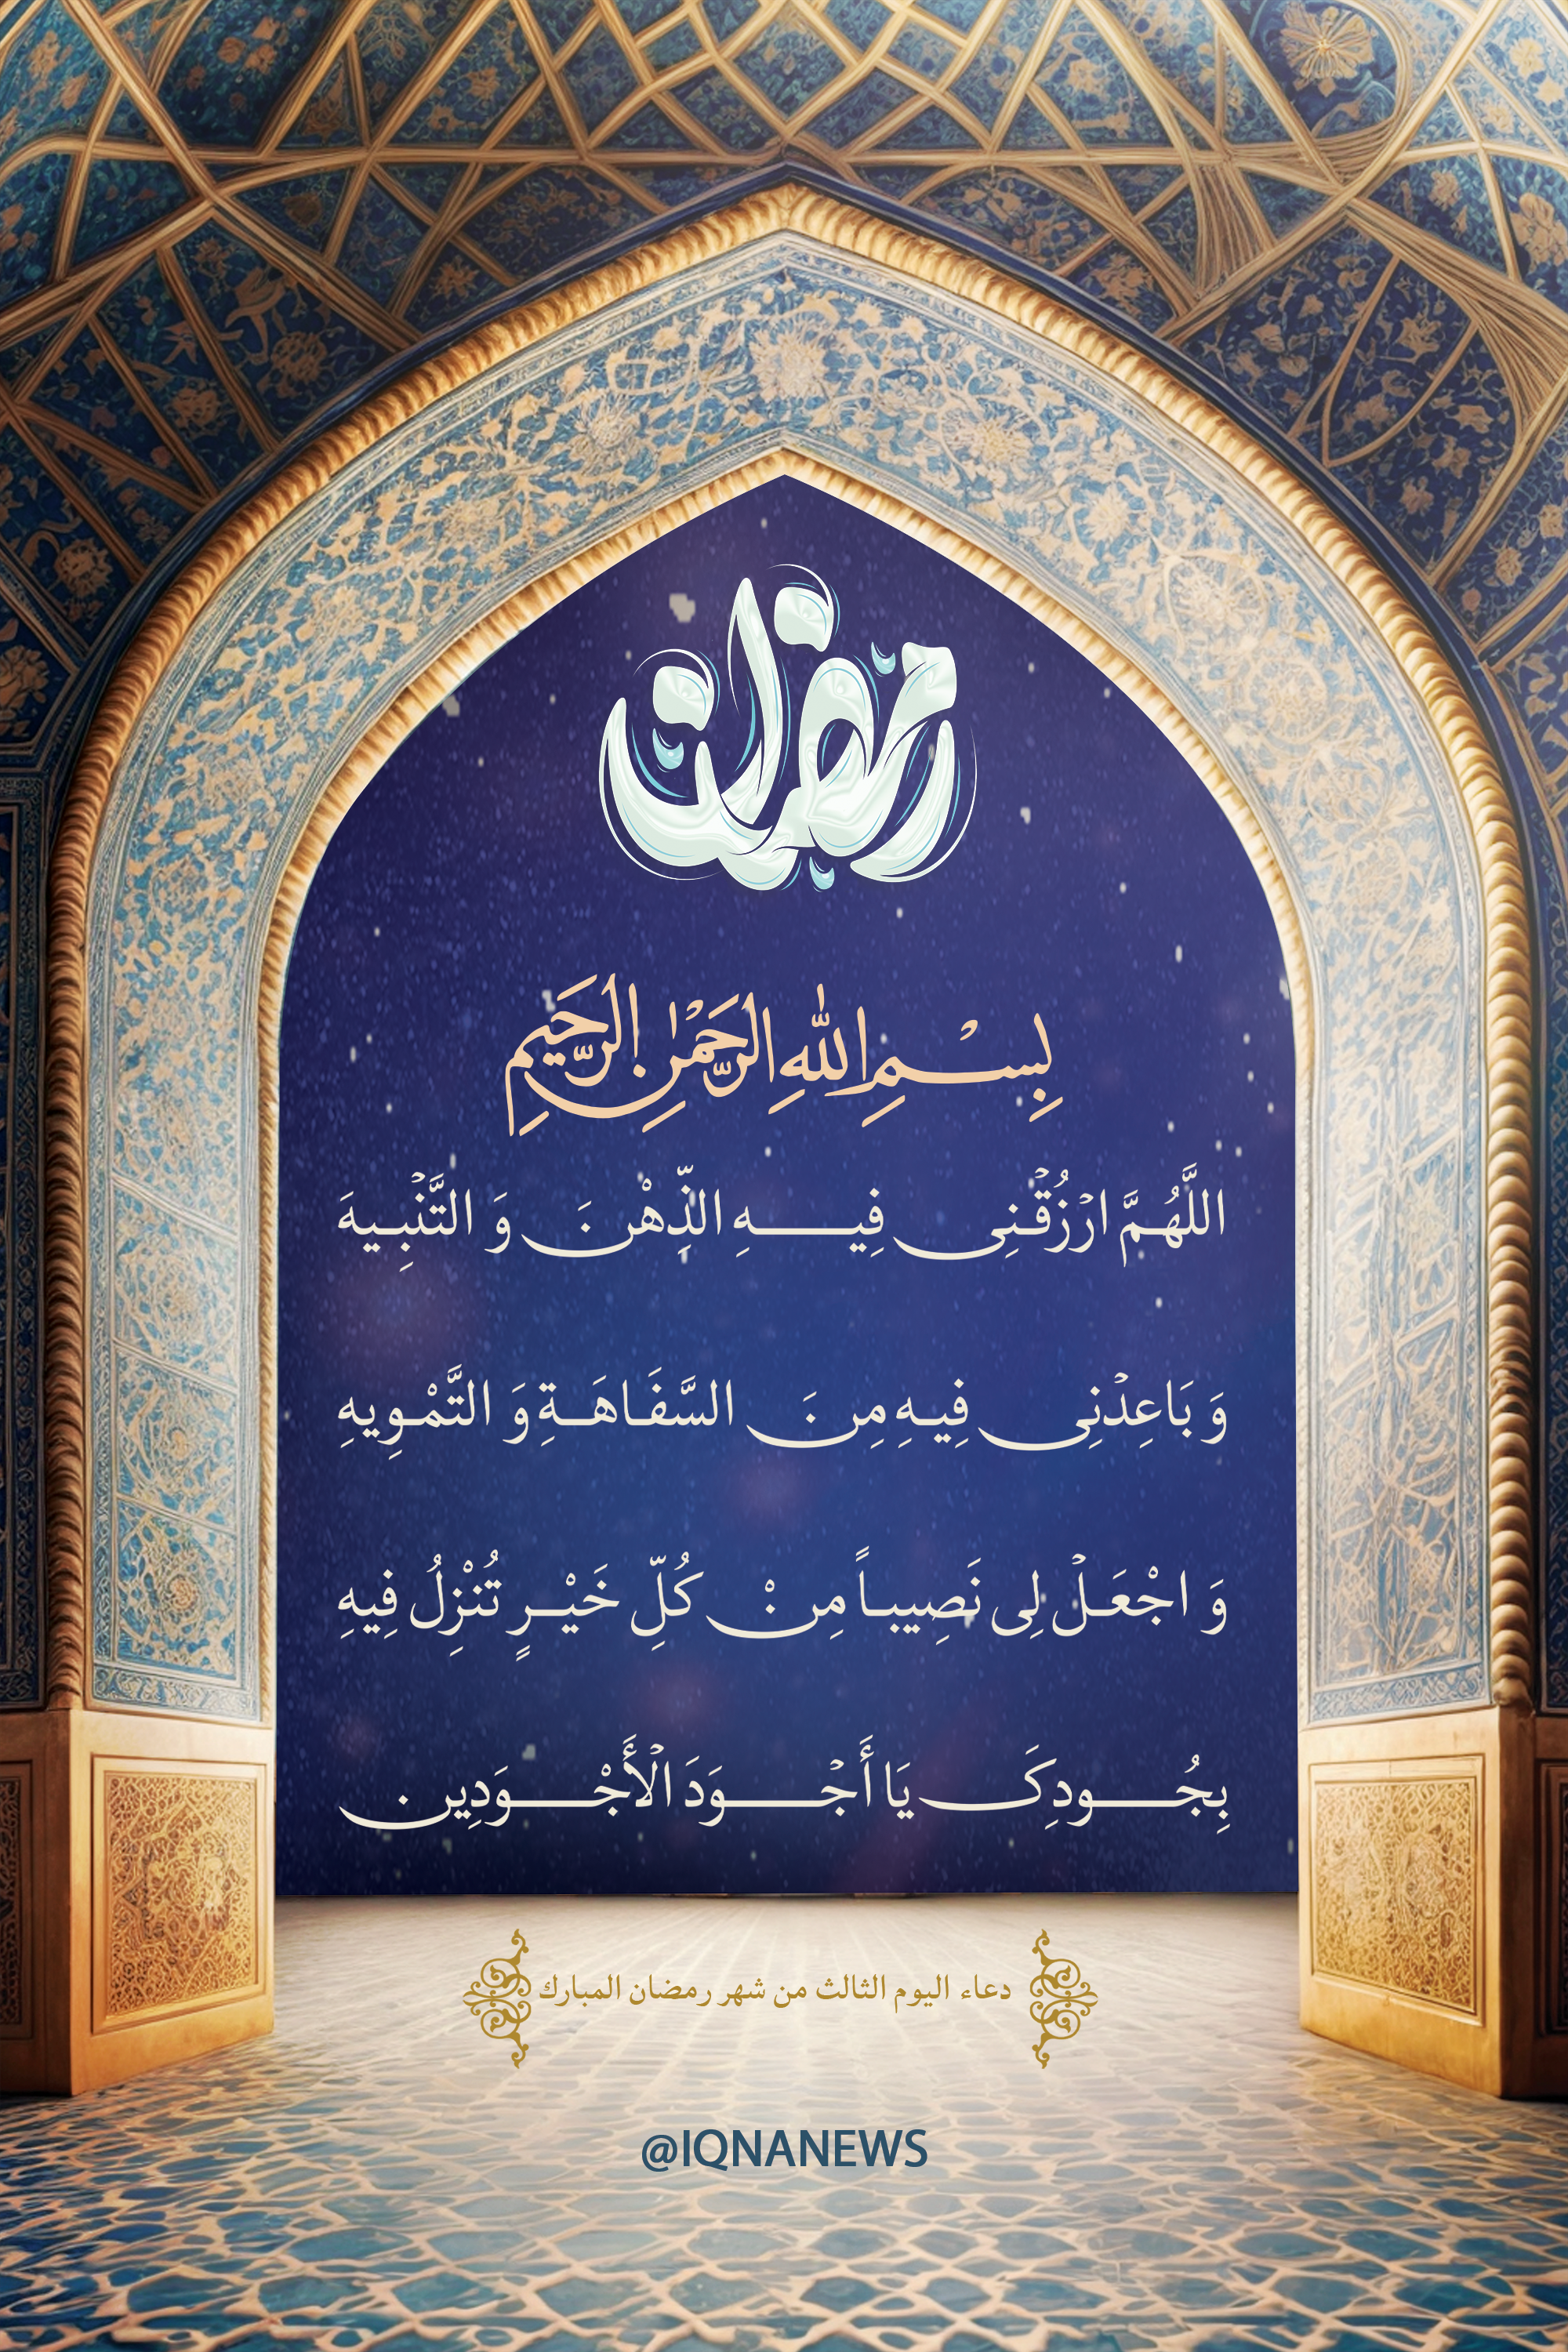 رمضان
بِسْمِ اللهِ الرَّحْمٰنِ الرَّحِيمِ
اللَّهُمَّ ارْزُقْنِی فِیهِ الذِّهْنَ وَ التَّنْبِیهَ
وَ بَاعِدْنِی فِیهِ مِنَ السَّفَاهَةِ وَ التَّمْوِیهِ
وَ اجْعَلْ لِی نَصِیباً مِنْ كُلِّ خَیْرٍ تُنْزِلُ فِیهِ
بِجُودِكَ یَا أَجْوَدَ الْأَجْوَدِین
دعاء اليوم الثالث من شهر رمضان المبارك
@IQNANEWS